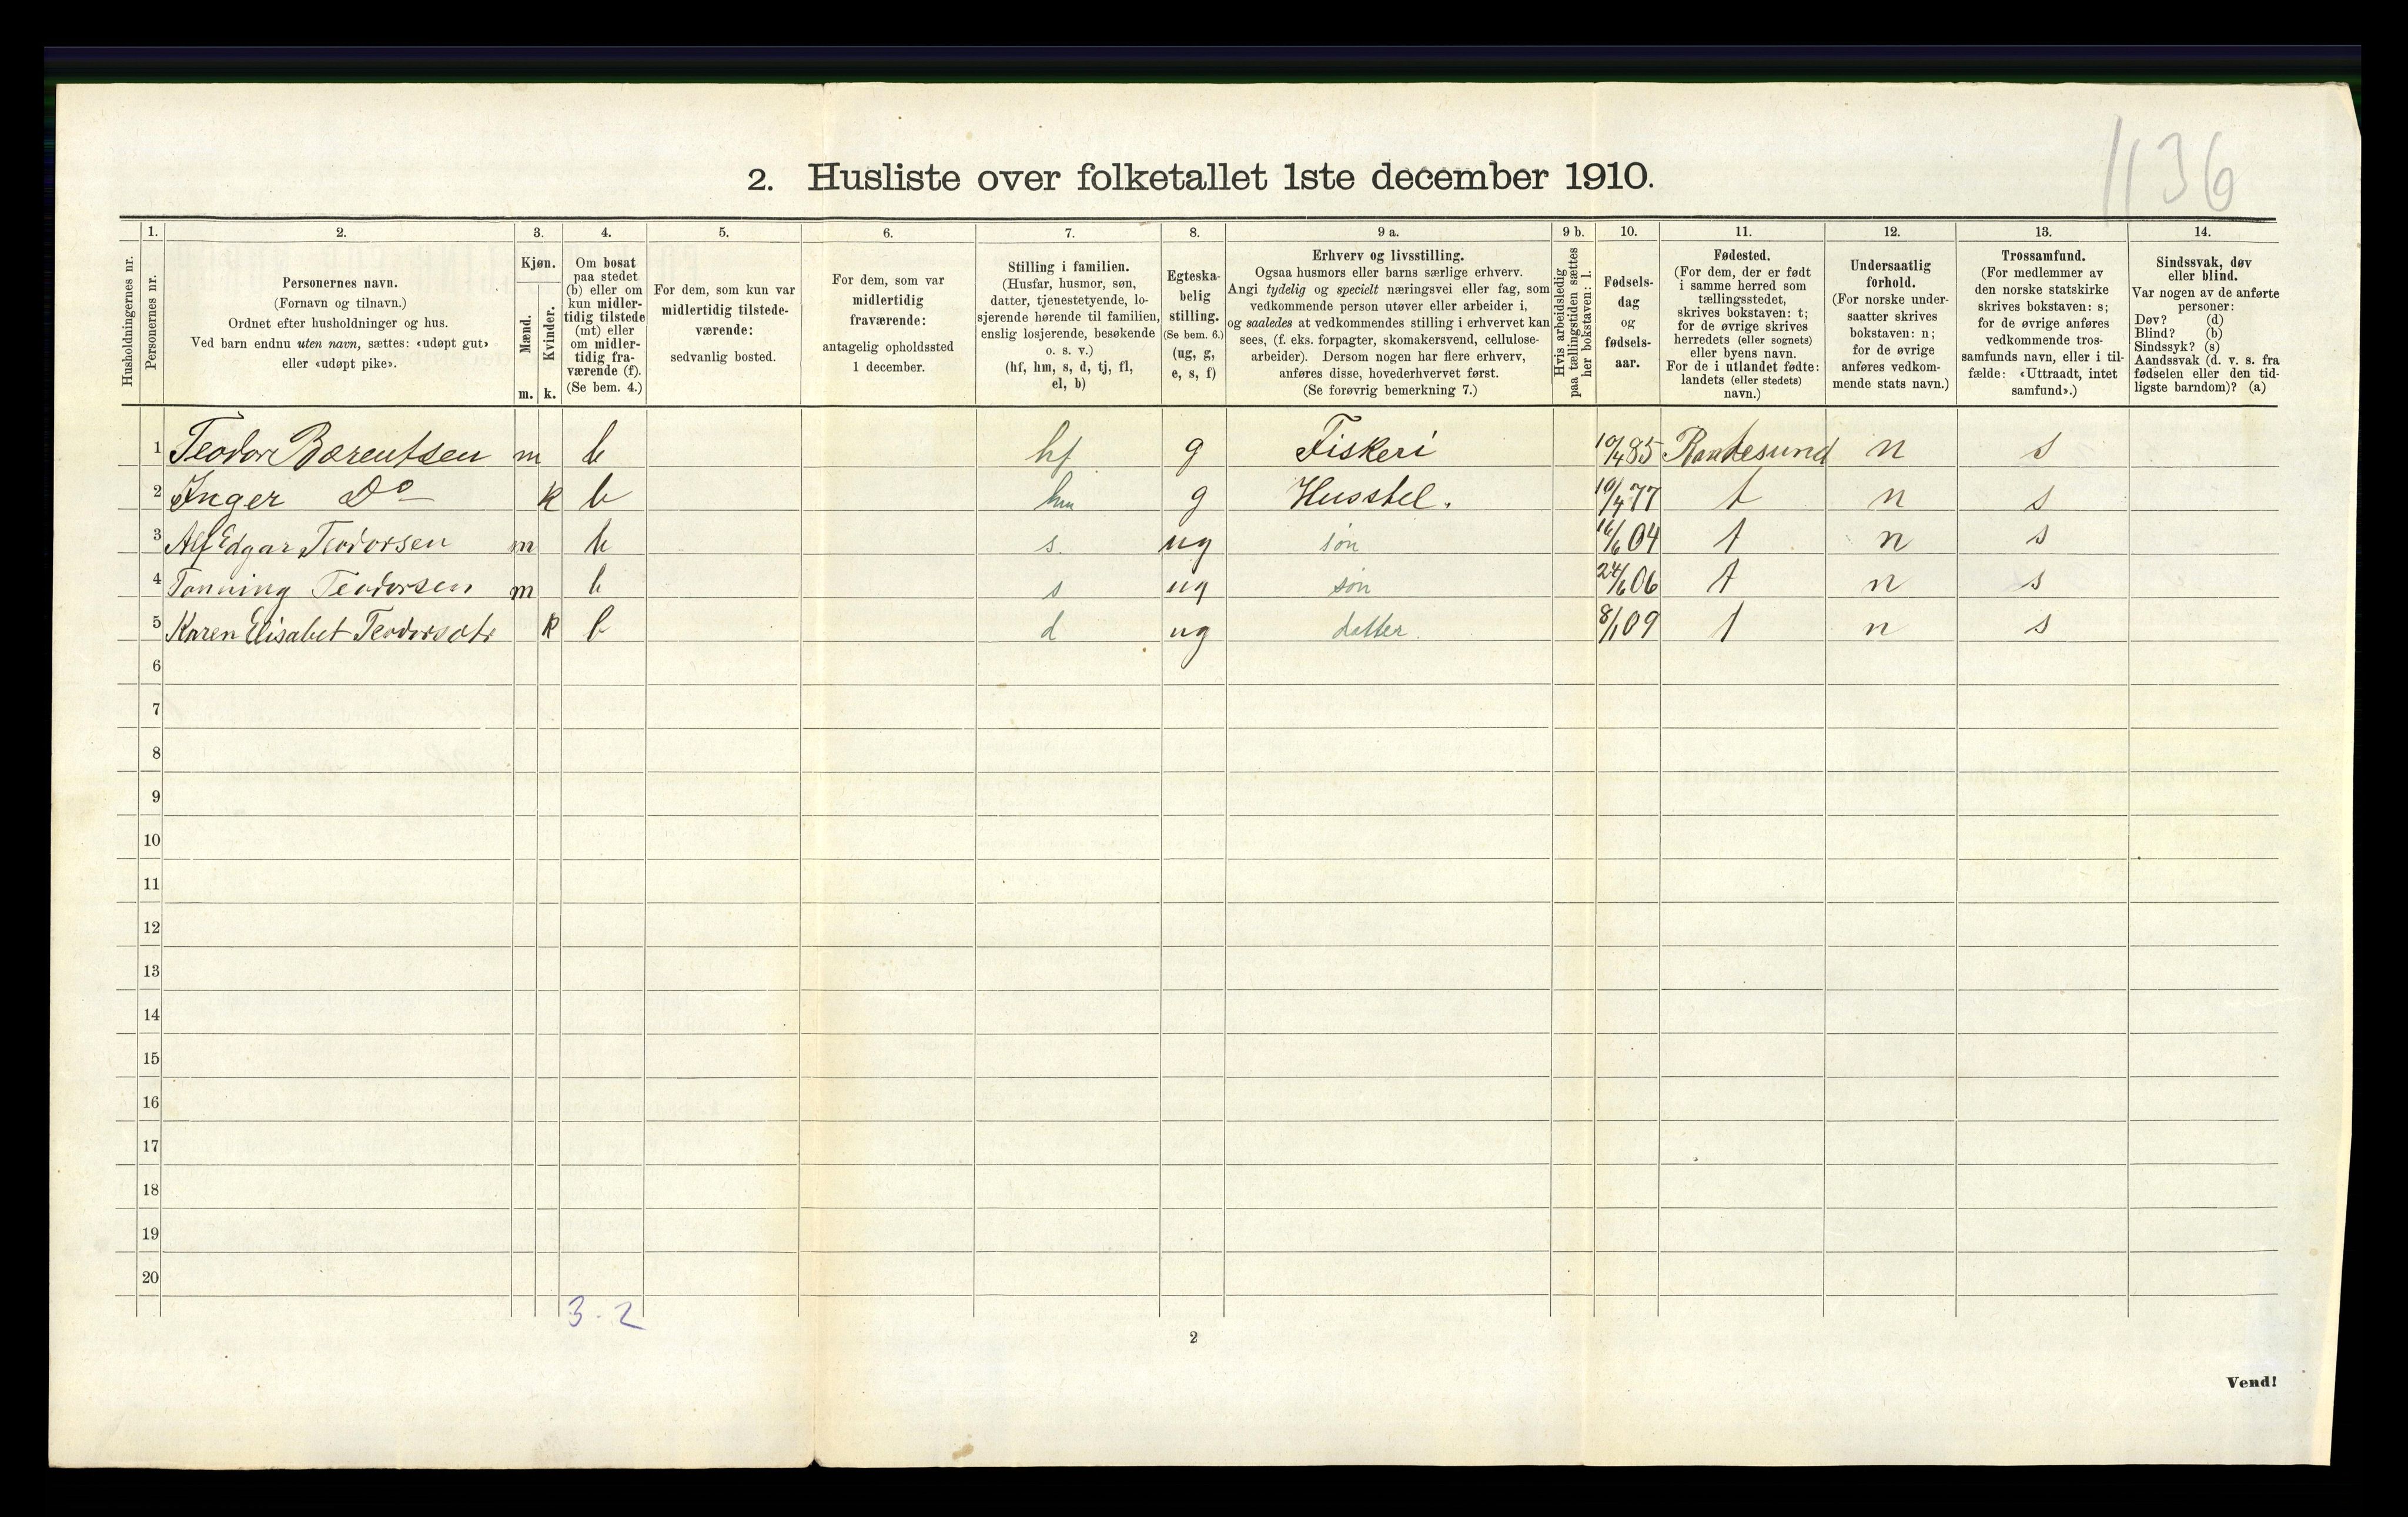 1136
2. Husliste over folketallet 1ste december 1910.
Husholdningernes nr.
1. Personernes nr.
2. Personernes navn. (Fornavn og tilnavn.) Ordnet efter husholdninger og hus. Ved barn endnu uten navn, sættes: «udøpt gut» eller «udøpt pike».
3. Kjøn. Mænd. m. Kvinder. k.
4. Om bosat paa stedet (b) eller om kun midlertidig tilstede (mt) eller om midlertidig fraværende (f). (Se bem. 4.)
5. For dem, som kun var midlertidig tilstedeværende: sedvanlig bosted.
6. For dem, som var midlertidig fraværende: antagelig opholdssted 1 december.
7. Stilling i familien. (Husfar, husmor, søn, datter, tjenestetyende, losjerende hørende til familien, enslig losjerende, besøkende o. s. v.) (hf, hm, s, d, tj, fl, el, b)
8. Egteskabelig stilling. (Se bem. 6.) (ug, g, e, s, f)
9 a. Erhverv og livsstilling. Ogsaa husmors eller barns særlige erhverv. Angi tydelig og specielt næringsvei eller fag, som vedkommende person utøver eller arbeider i, og saaledes at vedkommendes stilling i erhvervet kan sees, (f. eks. forpagter, skomakersvend, cellulosearbeider). Dersom nogen har flere erhverv, anføres disse, hovederhvervet først. (Se forøvrig bemerkning 7.)
9 b. Hvis arbeidsledig paa tællingstiden sættes her bokstaven: l.
10. Fødselsdag og fødselsaar.
11. Fødested. (For dem, der er født i samme herred som tællingsstedet, skrives bokstaven: t; for de øvrige skrives herredets (eller sognets) eller byens navn. For de i utlandet fødte: landets (eller stedets) navn.)
12. Undersaatlig forhold. (For norske undersaatter skrives bokstaven: n; for de øvrige anføres vedkommende stats navn.)
13. Trossamfund. (For medlemmer av den norske statskirke skrives bokstaven: s; for de øvrige anføres vedkommende trossamfunds navn, eller i tilfælde: «Uttraadt, intet samfund».)
14. Sindssvak, døv eller blind. Var nogen av de anførte personer: Døv? (d) Blind? (b) Sindssyk? (s) Aandssvak (d. v. s. fra fødselen eller den tidligste barndom)? (a)
1 Teodor Bærentsen m b hf g Fiskeri 10/4 85 Randesund n s
2 Inger Do k b hm g Husstel. 10/4 77 t n s
3 Alf Edgar Teodorsen m b s. ug søn 16/6 04 t n s
4 Tønning Teodorsen m b s ug søn 24/6 06 t n s
5 Karen Elisabet Teodorsdtr k b d ug datter. 8/1 09 t n s
6
7
8
9
10
11
12
13
14
15
16
17
18
19
20
3 - 2
2
Vend!